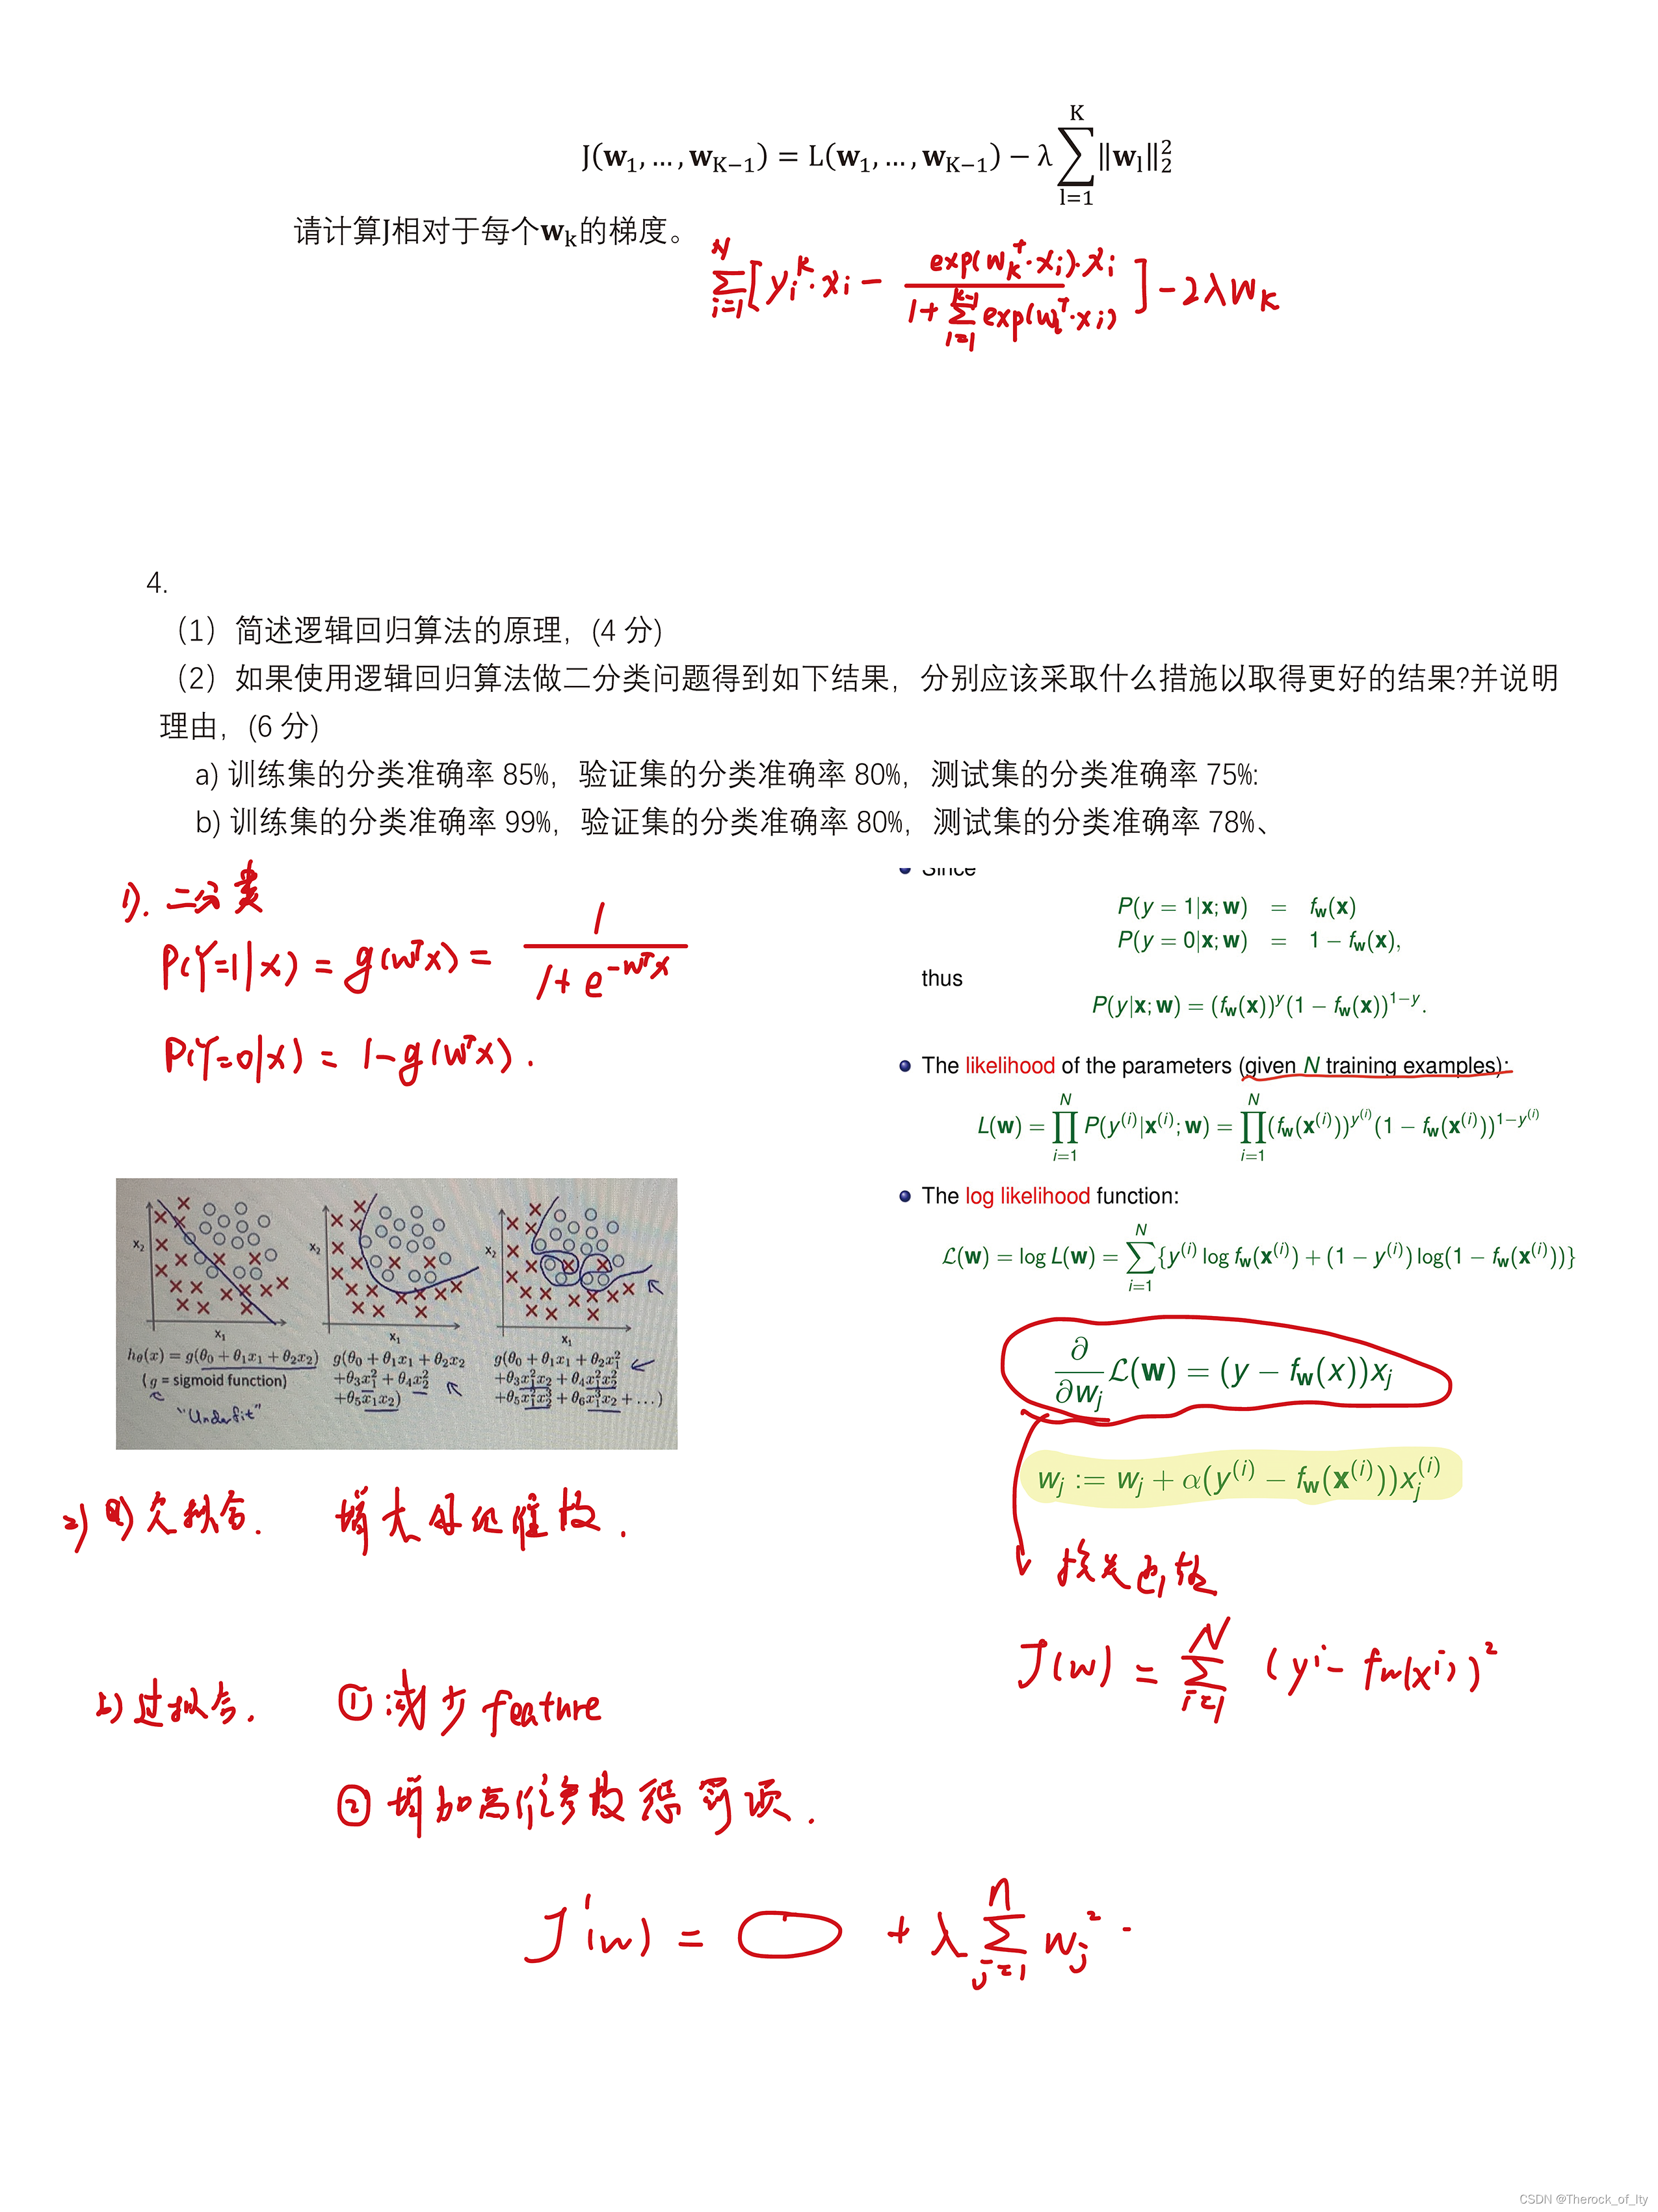 J(w₁, …, w_K−1) = L(w₁, …, w_K−1) − λ ∑_{l=1}^{K} ‖w_l‖₂²
请计算J相对于每个w_k的梯度。
∑_{i=1}^{N} [ y_i^k · x_i − exp(w_k^T · x_i) · x_i / (1 + ∑_{l=1}^{k-1} exp(w_l^T · x_i)) ] − 2λw_k
4.
（1）简述逻辑回归算法的原理，(4 分)
（2）如果使用逻辑回归算法做二分类问题得到如下结果，分别应该采取什么措施以取得更好的结果?并说明
理由，(6 分)
a) 训练集的分类准确率 85%，验证集的分类准确率 80%，测试集的分类准确率 75%:
b) 训练集的分类准确率 99%，验证集的分类准确率 80%，测试集的分类准确率 78%、
1). 二分类
P(Y=1|x) = g(w^T x) = 1 / (1 + e^{-w^T x})
P(Y=0|x) = 1 − g(w^T x) .
Since
P(y = 1|x; w) = f_w(x)
P(y = 0|x; w) = 1 − f_w(x),
thus
P(y|x; w) = (f_w(x))^y (1 − f_w(x))^{1−y}.
The likelihood of the parameters (given N training examples):
L(w) = ∏_{i=1}^{N} P(y^(i)|x^(i); w) = ∏_{i=1}^{N} (f_w(x^(i)))^{y^(i)} (1 − f_w(x^(i)))^{1−y^(i)}
The log likelihood function:
ℒ(w) = log L(w) = ∑_{i=1}^{N} {y^(i) log f_w(x^(i)) + (1 − y^(i)) log(1 − f_w(x^(i)))}
∂/∂w_j ℒ(w) = (y − f_w(x))x_j
w_j := w_j + α(y^(i) − f_w(x^(i)))x_j^(i)
J(w) = ∑_{i=1}^{N} (y^i − f_w(x^i))²
x₂ x₁
x₂ x₁
x₂ x₁
h_θ(x) = g(θ₀ + θ₁x₁ + θ₂x₂)
(g = sigmoid function)
"Underfit"
g(θ₀ + θ₁x₁ + θ₂x₂
+θ₃x₁² + θ₄x₂²
+θ₅x₁x₂)
g(θ₀ + θ₁x₁ + θ₂x₁²
+θ₃x₁²x₂ + θ₄x₁²x₂²
+θ₅x₁²x₂³ + θ₆x₁³x₂ + …)
2) a) 欠拟合. 增大 维数.
b) 过拟合. ① 减少 feature
② 增加高阶参数惩罚项.
J'(w) = + λ ∑_{j=1}^{n} w_j²
CSDN @Therock_of_lty